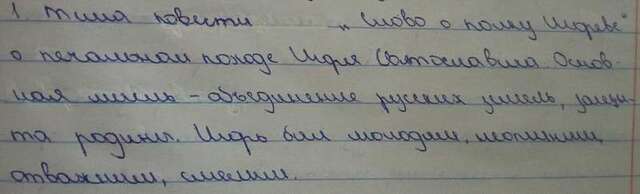 1. Тема повести „Слово о полку Игореве"
о печальном походе Игоря Святославича. Основ-
ная мысль – объединение русских земель, защи-
та родины. Игорь был молодым, неопытным,
отважным, смелым.